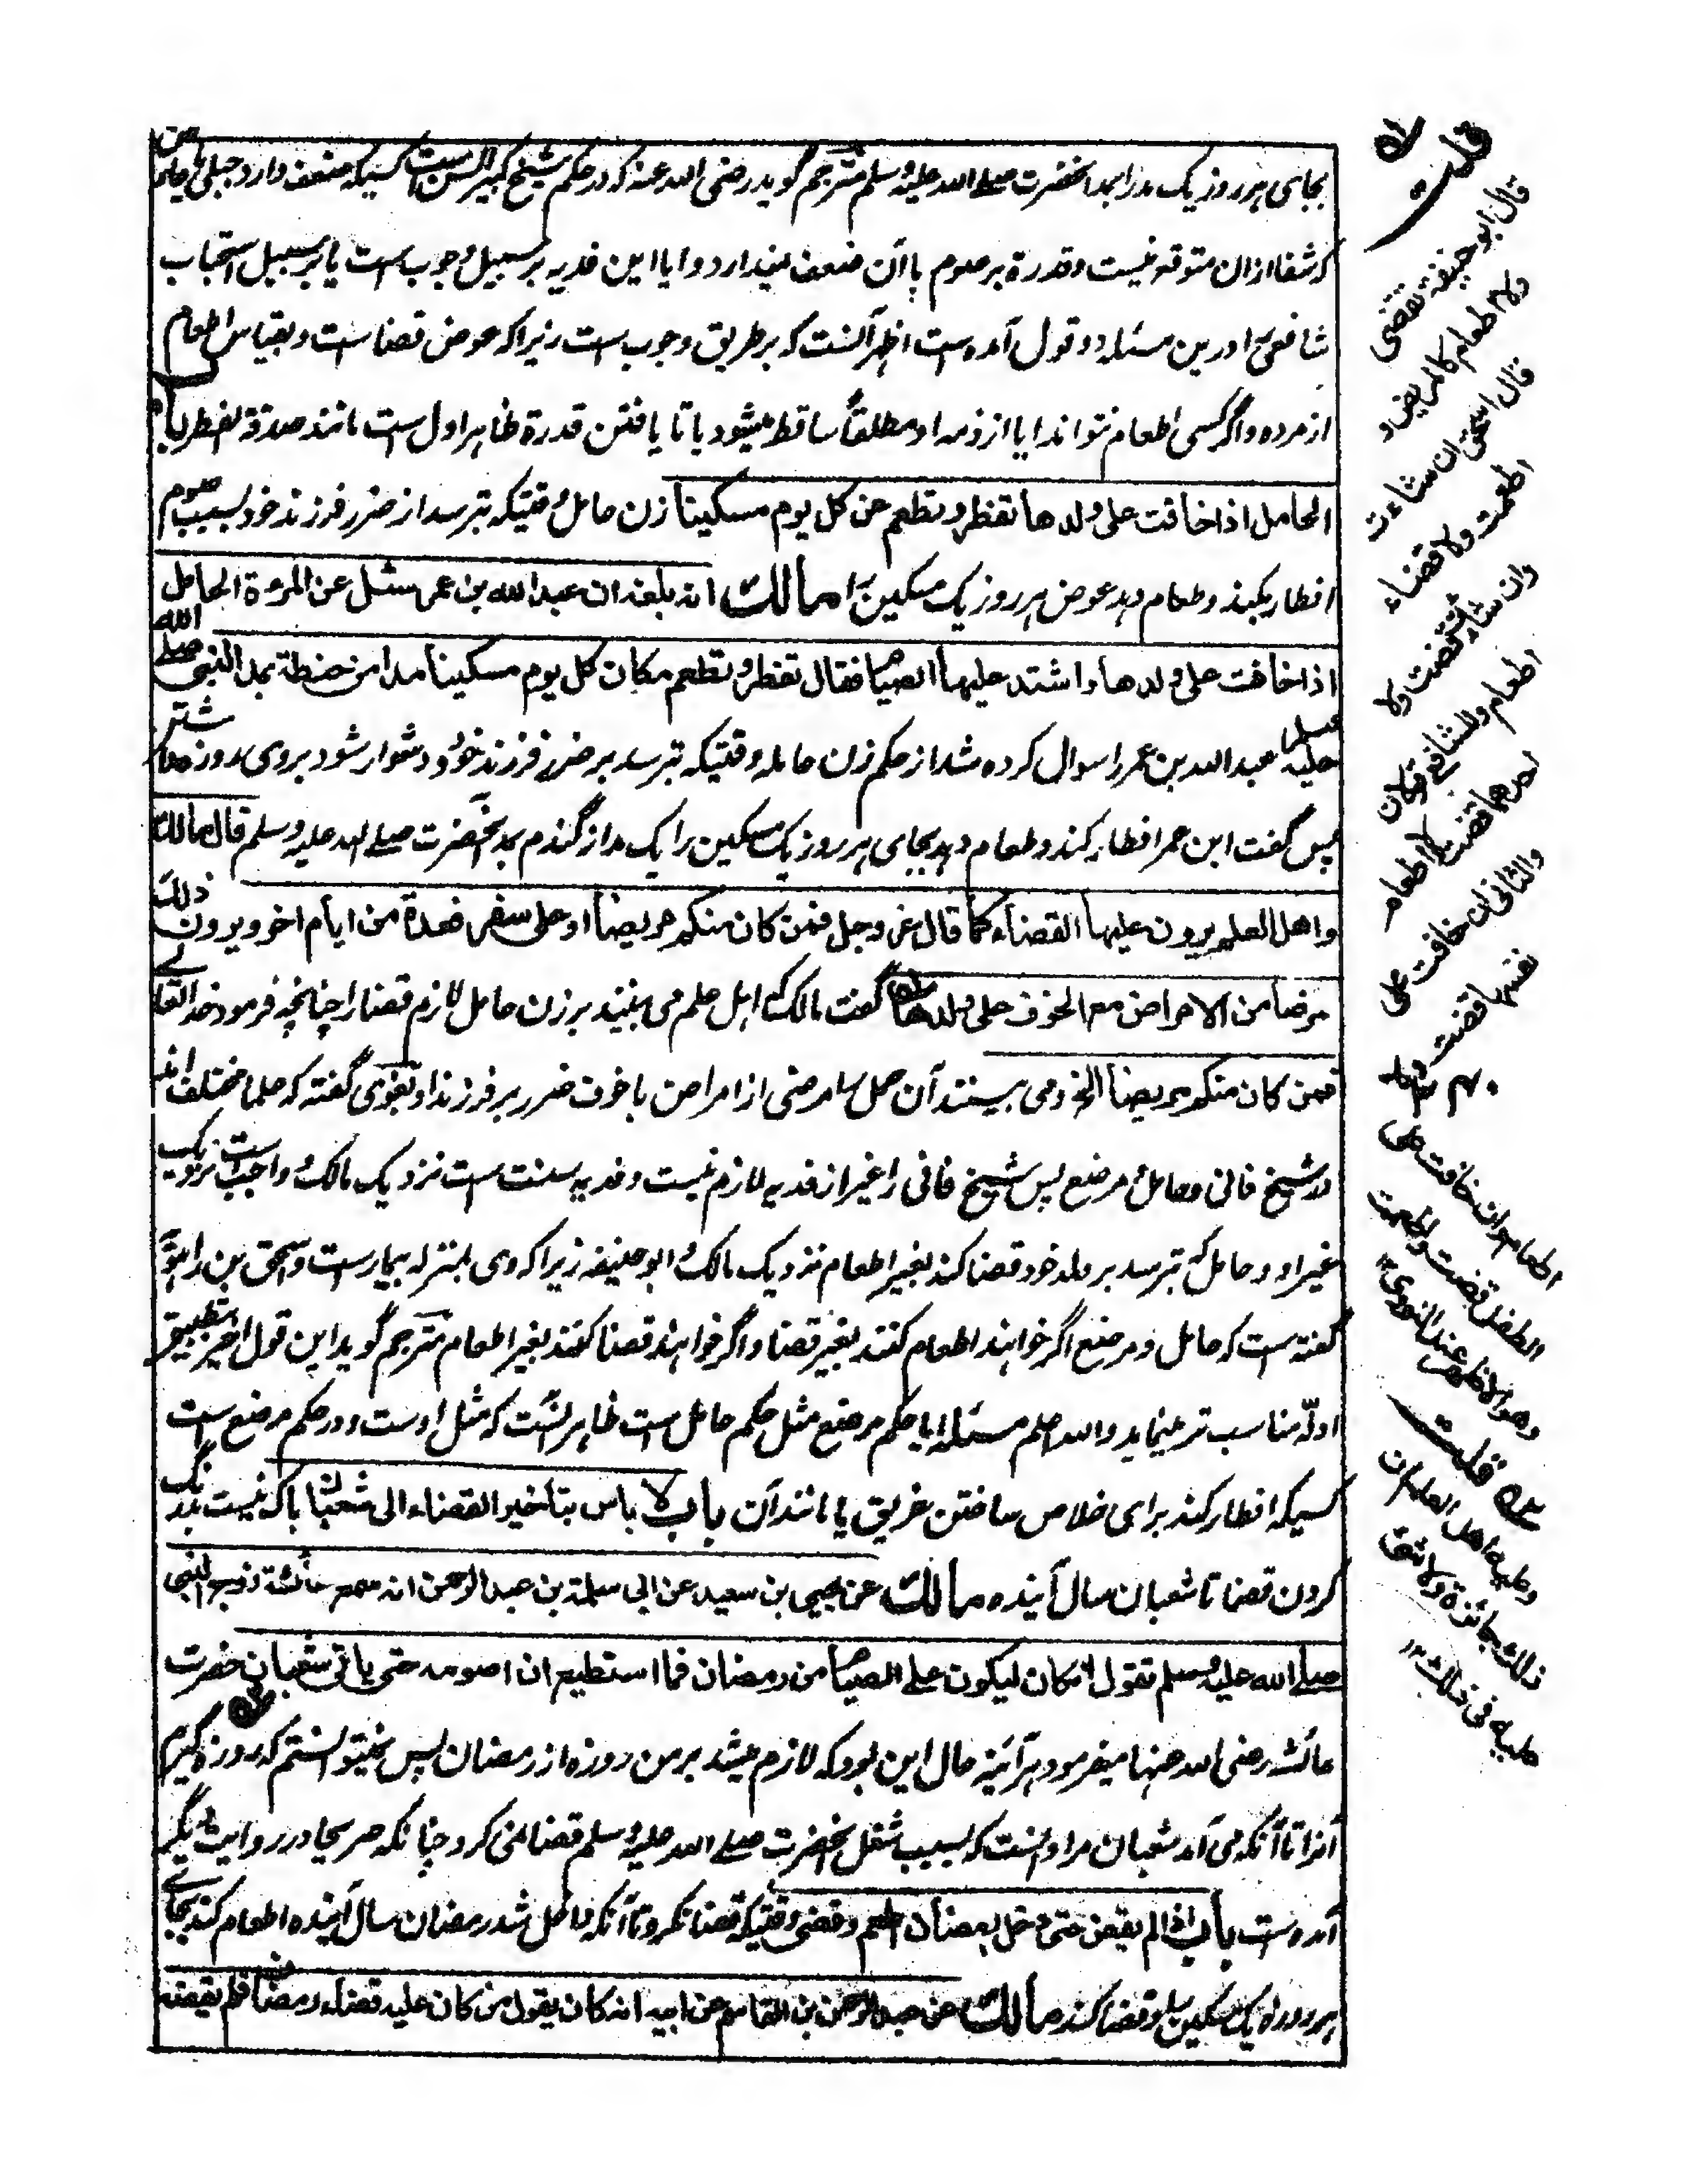 بجای هر روز یک مد را بمد آنحضرت صلے الله علیه وسلم مترجم گوید رضی الله عنه که در حکم شیخ کبیر السن است کسیکه ضعف دارد جبلی یا مرض
که شفا ازان متوقع نیست وقدرة بر صوم با آن ضعف نمیدارد وایا این فدیه بر سبیل وجوب است یا بر سبیل استحباب
شافعی را درین مسئله دو قول آمده است اظهر آنست که بر طریق وجوب است زیرا که عوض قضا است وبقیاس اطعام
از مرده واگر کسی اطعام نتواند ایا از ذمه او مطلقا ساقط میشود یا تا یافتن قدرة ظاهر اول است مانند صدقة الفطر باب
الحامل اذا خافت علی ولدها تفطر وتطعم عن کل یوم مسکینا زن حامل وقتیکه بترسد از ضرر فرزند خود بسبب صوم
افطار بکند وطعام دهد عوض هر روز یک مسکین را مالك انه بلغه ان عبد الله بن عمر سئل عن المرءة الحامل
اذا خافت علی ولدها واشتد علیها الصیام فقال تفطر وتطعم مکان کل یوم مسکینا مدا من حنطة بمد النبی صلے الله
علیه وسلم عبد الله بن عمر را سوال کرده شد از حکم زن حامله وقتیکه بترسد بر ضرر فرزند خود ودشوار شود بروی روزه داشتن
پس گفت ابن عمر افطار کند وطعام دهد بجای هر روز یک مسکین را یک مد از گندم بمد آنحضرت صلے الله علیه وسلم قال مالك
واهل العلم یرون علیها القضاء کما قال عز وجل فمن کان منکم مریضا او علی سفر فعدة من ایام اخر ویرون ذلك
مرضا من الامراض مع الخوف علی ولدها گفت مالک که اهل علم می بینند بر زن حامل لازم قضا را چنانچه فرمود خدا تعالے
فمن کان منکم مریضا الخ ومی بینند آن حمل را مرضی از امراض با خوف ضرر بر فرزند او بغوی گفته که علما مختلف اند
در شیخ فانی وحامل ومرضع پس شیخ فانی را غیر از فدیه لازم نیست وفدیه سنت است نزدیک مالک وواجب است نزدیک
غیر او وحامل که بترسد بر ولد خود قضا کند بغیر اطعام نزدیک مالک وابو حنیفه زیرا که وی بمنزله بیمار است واسحق بن راهویه
گفته است که حامل ومرضع اگر خواهند اطعام کنند بغیر قضا واگر خواهند قضا کنند بغیر اطعام مترجم گوید این قول اخیر بتطبیق
ادله مناسب تر مینماید والله اعلم مسئله ایا حکم مرضع مثل حکم حامل است ظاهر آنست که مثل اوست ودر حکم مرضع است
کسیکه افطار کند برای خلاص ساختن غریق یا مانند آن باب لا باس بتاخیر القضاء الی شعبان باک نیست بدرنگ
کردن قضا تا شعبان سال آینده مالك عن یحیی بن سعید عن ابی سلمة بن عبد الرحمن انه سمع عائشة زوج النبی
صلے الله علیه وسلم تقول ان کان لیکون علی الصیام من رمضان فما استطیع ان اصومه حتی یاتی شعبان حضرت
عائشه رضی الله عنها میفرمود هر آئینه حال این بود که لازم میشد بر من روزه از رمضان پس نمیتوانستم که روزه گیرم
آنرا تا آنکه می آمد شعبان مراد آنست که بسبب شغل آنحضرت صلے الله علیه وسلم قضا نمی کرد چنانکه صریحا در روایت دیگر
آمده است باب اذا لم یقض حتی دخل رمضان اطعم وقضی وقتیکه قضا نکرد تا آنکه داخل شد رمضان سال آینده اطعام کند بجائے
هر روزه یک مسکین را وقضا کند مالك عن عبد الرحمن بن القاسم عن ابیه انه کان یقول من کان علیه قضاء رمضان فلم یقضه
قلت
قال ابو حنیفة تقضی
ولا اطعام کالمریض و
قال اسحق ان شاءت
اطعمت ولا قضاء
وان شاءت قضت ولا
اطعام وللشافعی قولان
احدهما قضت لا اطعام
والثانی ان خافت علی
نفسها قضت ولا
اطعام وان خافت علی
الطفل قضت واطعمت
وهو الاظهر عند النووی
قلت
وعلیه اهل العلم ان
ذلك جائزة ولا شئ
علیه فی ذلك ۱۲